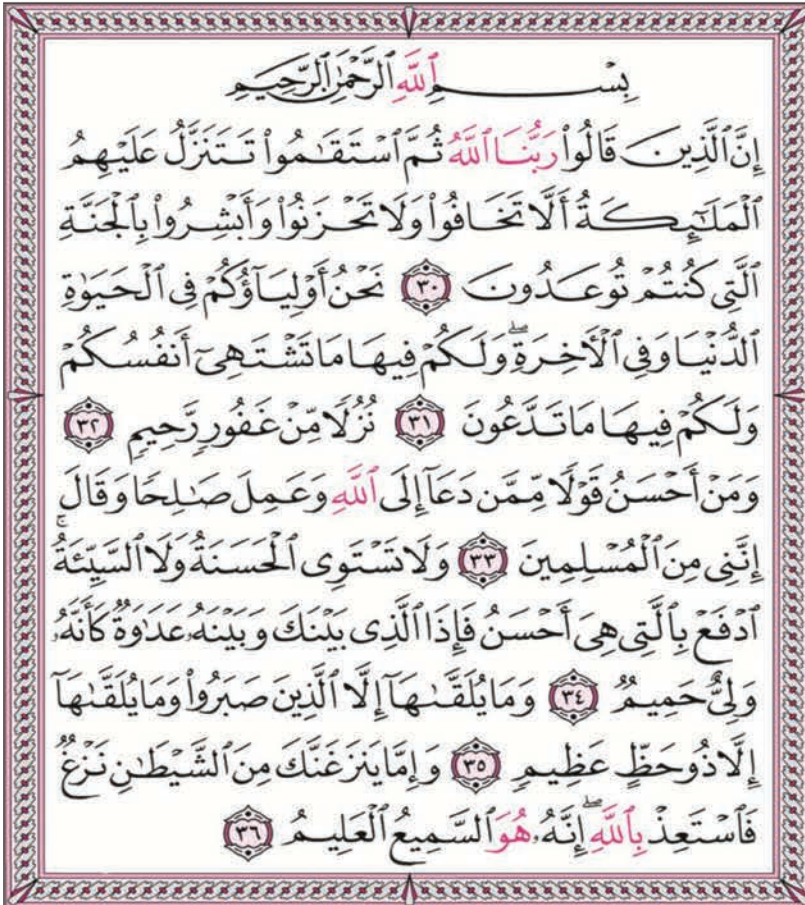 بِسْمِ ٱللَّهِ ٱلرَّحْمَٰنِ ٱلرَّحِيمِ
إِنَّ ٱلَّذِينَ قَالُوا۟ رَبُّنَا ٱللَّهُ ثُمَّ ٱسْتَقَٰمُوا۟ تَتَنَزَّلُ عَلَيْهِمُ
ٱلْمَلَٰٓئِكَةُ أَلَّا تَخَافُوا۟ وَلَا تَحْزَنُوا۟ وَأَبْشِرُوا۟ بِٱلْجَنَّةِ
ٱلَّتِى كُنتُمْ تُوعَدُونَ ٣٠ نَحْنُ أَوْلِيَآؤُكُمْ فِى ٱلْحَيَوٰةِ
ٱلدُّنْيَا وَفِى ٱلْأَخِرَةِ ۖ وَلَكُمْ فِيهَا مَا تَشْتَهِىٓ أَنفُسُكُمْ
وَلَكُمْ فِيهَا مَا تَدَّعُونَ ٣١ نُزُلًا مِّنْ غَفُورٍ رَّحِيمٍ ٣٢
وَمَنْ أَحْسَنُ قَوْلًا مِّمَّن دَعَآ إِلَى ٱللَّهِ وَعَمِلَ صَٰلِحًا وَقَالَ
إِنَّنِى مِنَ ٱلْمُسْلِمِينَ ٣٣ وَلَا تَسْتَوِى ٱلْحَسَنَةُ وَلَا ٱلسَّيِّئَةُ ۚ
ٱدْفَعْ بِٱلَّتِى هِىَ أَحْسَنُ فَإِذَا ٱلَّذِى بَيْنَكَ وَبَيْنَهُۥ عَدَٰوَةٌ كَأَنَّهُۥ
وَلِىٌّ حَمِيمٌ ٣٤ وَمَا يُلَقَّىٰهَآ إِلَّا ٱلَّذِينَ صَبَرُوا۟ وَمَا يُلَقَّىٰهَآ
إِلَّا ذُو حَظٍّ عَظِيمٍ ٣٥ وَإِمَّا يَنزَغَنَّكَ مِنَ ٱلشَّيْطَٰنِ نَزْغٌ
فَٱسْتَعِذْ بِٱللَّهِ ۖ إِنَّهُۥ هُوَ ٱلسَّمِيعُ ٱلْعَلِيمُ ٣٦